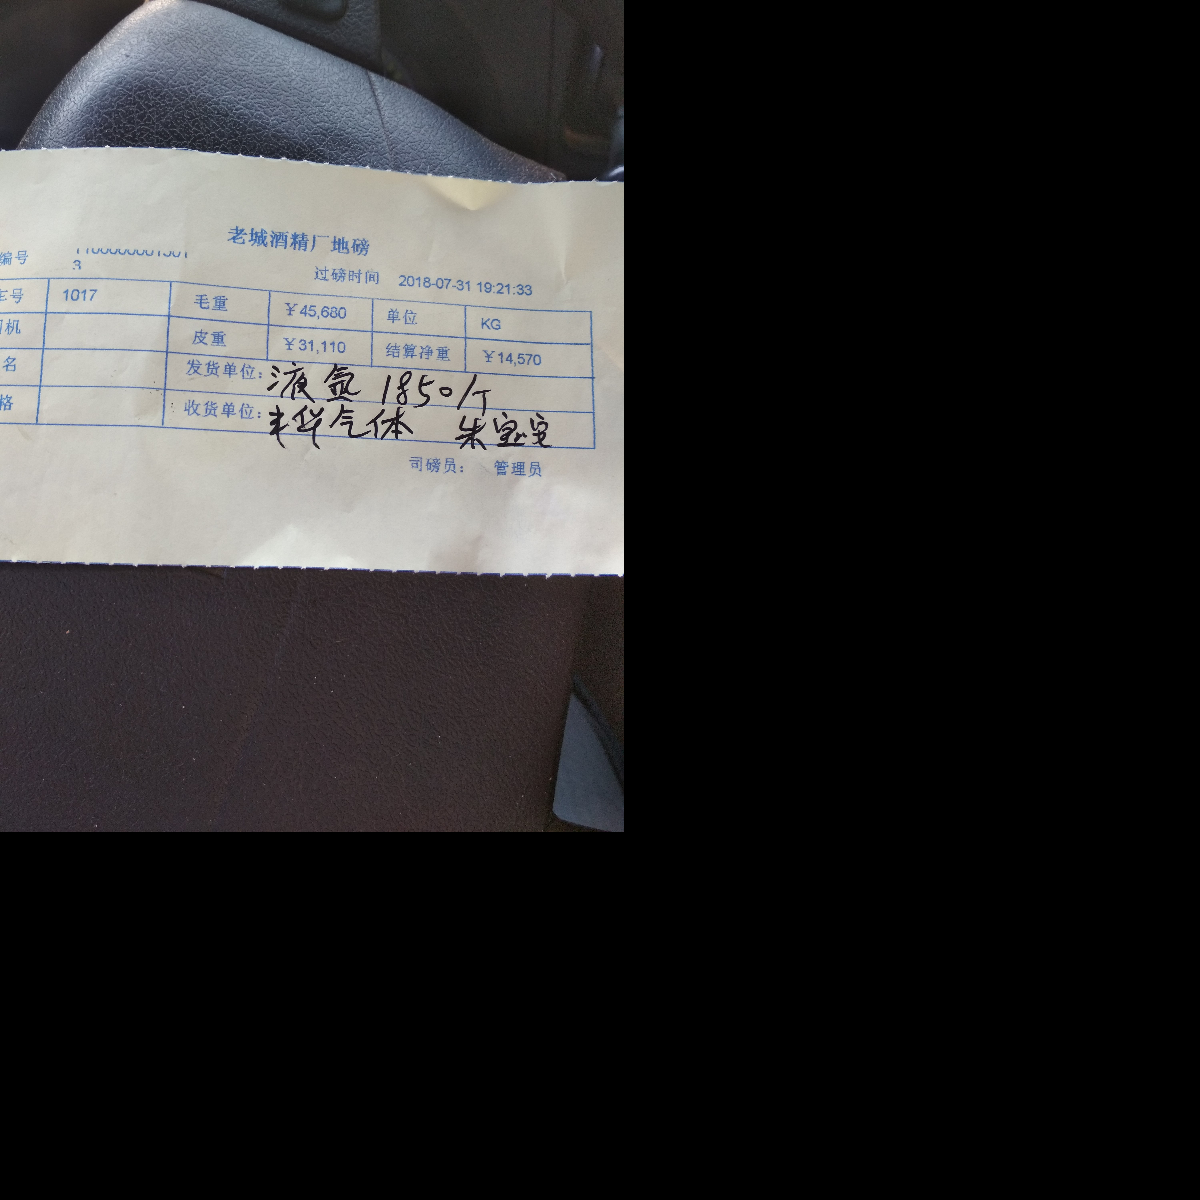 老城酒精厂地磅
编号
3
过磅时间 2018-07-31 19:21:33
车号 1017 毛重 ￥45,680 单位 KG
机 皮重 ￥31,110 结算净重 ￥14,570
名 发货单位：液氩 1850/T
格 收货单位：丰华气体 朱宝宝
司磅员： 管理员